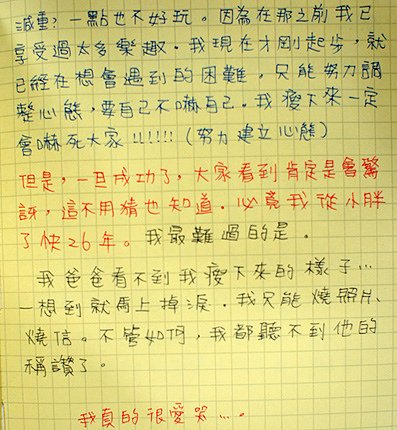 減重? 一點也不好玩。因為在那之前我已
享受過太多樂趣。我現在才剛起步,就
已經在想會遇到的困難。只能努力調
整心態,要自己不嚇自己。我瘦下來一定
會嚇死大家!!!!!!(努力建立心態)
但是,一旦成功了,大家看到肯定是會驚
訝,這不用猜也知道。必竟我從小胖
了快26年。我最難過的是。
我爸爸看不到我瘦下來的樣子…
一想到就馬上掉淚。我只能燒照片、
燒信。不管如何,我都聽不到他的
稱讚了。
我真的很愛哭…。